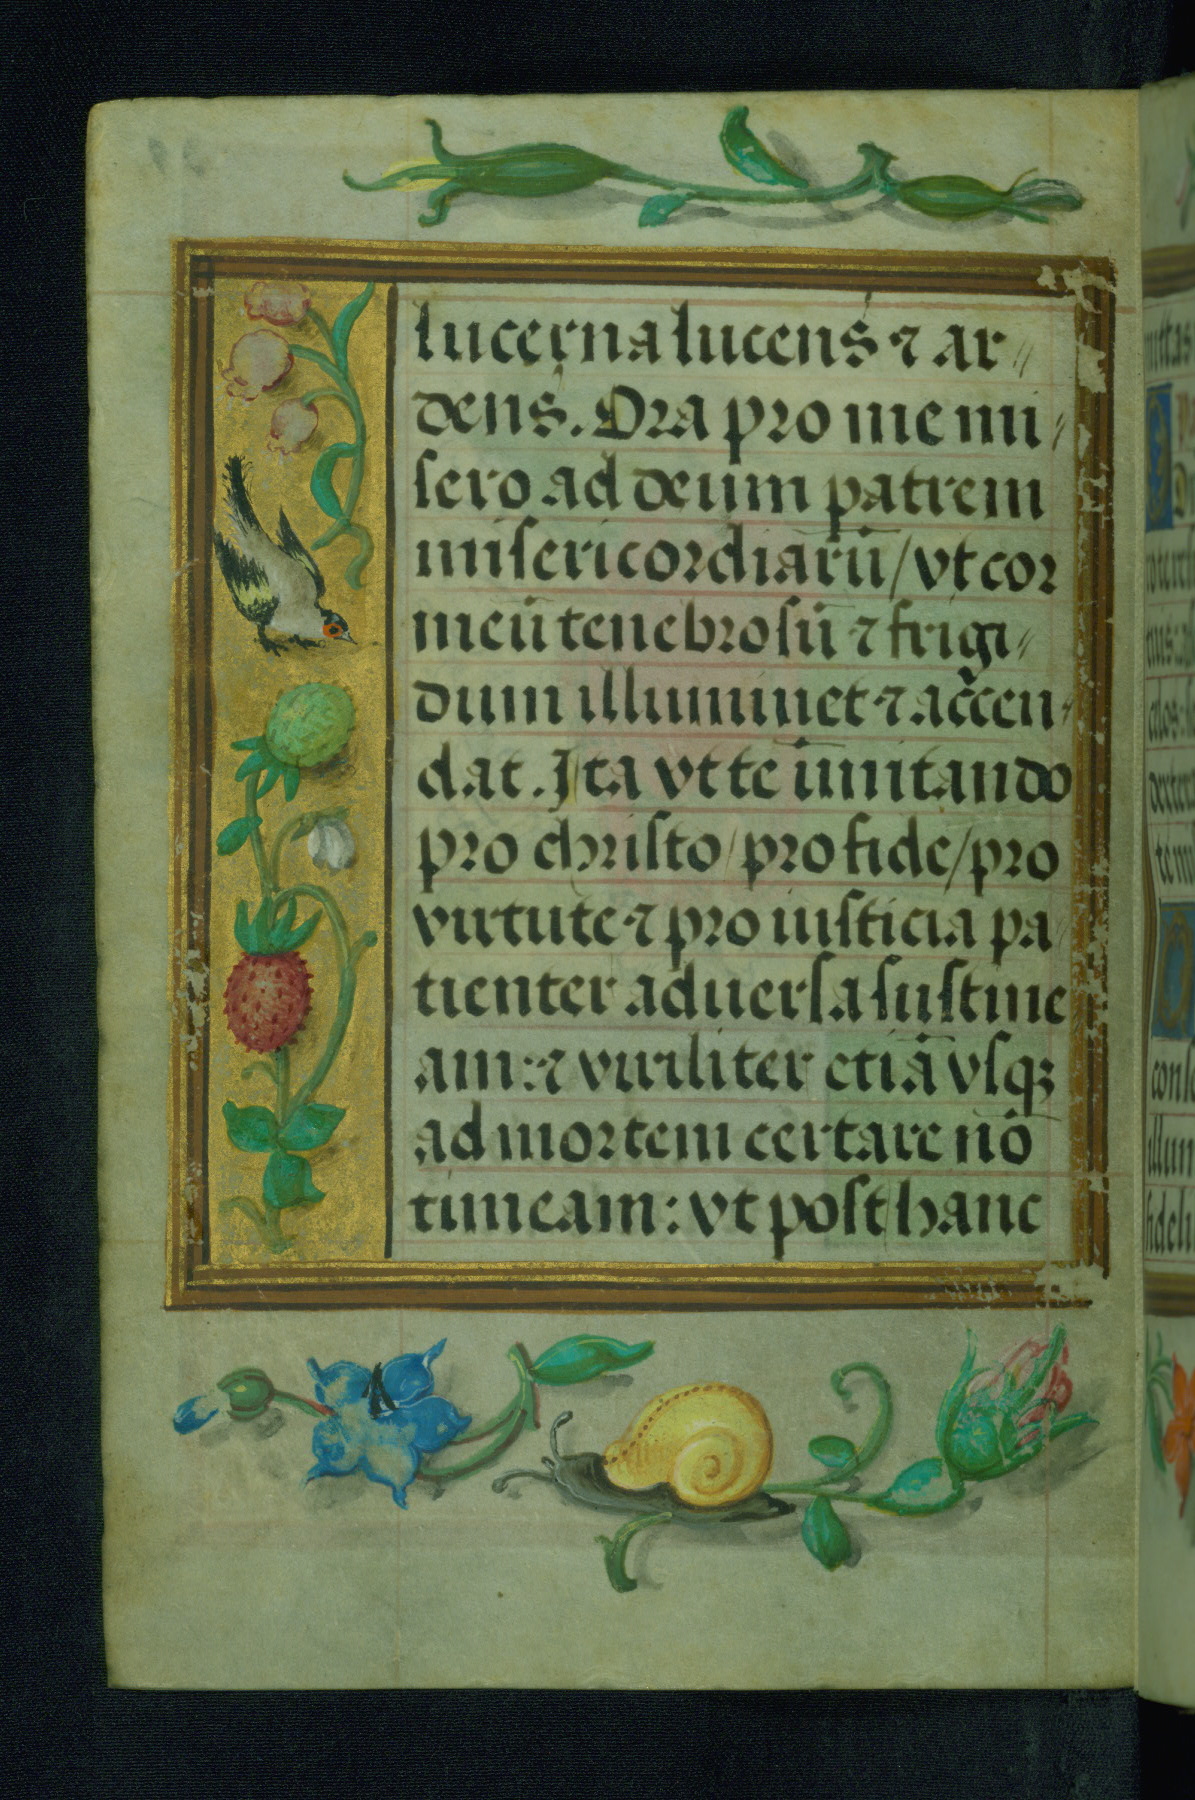 lucerna lucens ⁊ ar〃
dens. Ora pro me mi〃
ſero ad deum patrem
miſericordiarū / vt cor
meū tenebroſū ⁊ frigi〃
dum illuminet ⁊ accen〃
dat. Ita vt te imitando
pro chriſto / pro fide / pro
virtute ⁊ pro iuſticia pa〃
tienter aduerſa ſuſtine
am: ⁊ viriliter etiā vſqꝫ
ad mortem certare nō
timeam: vt poſt hanc